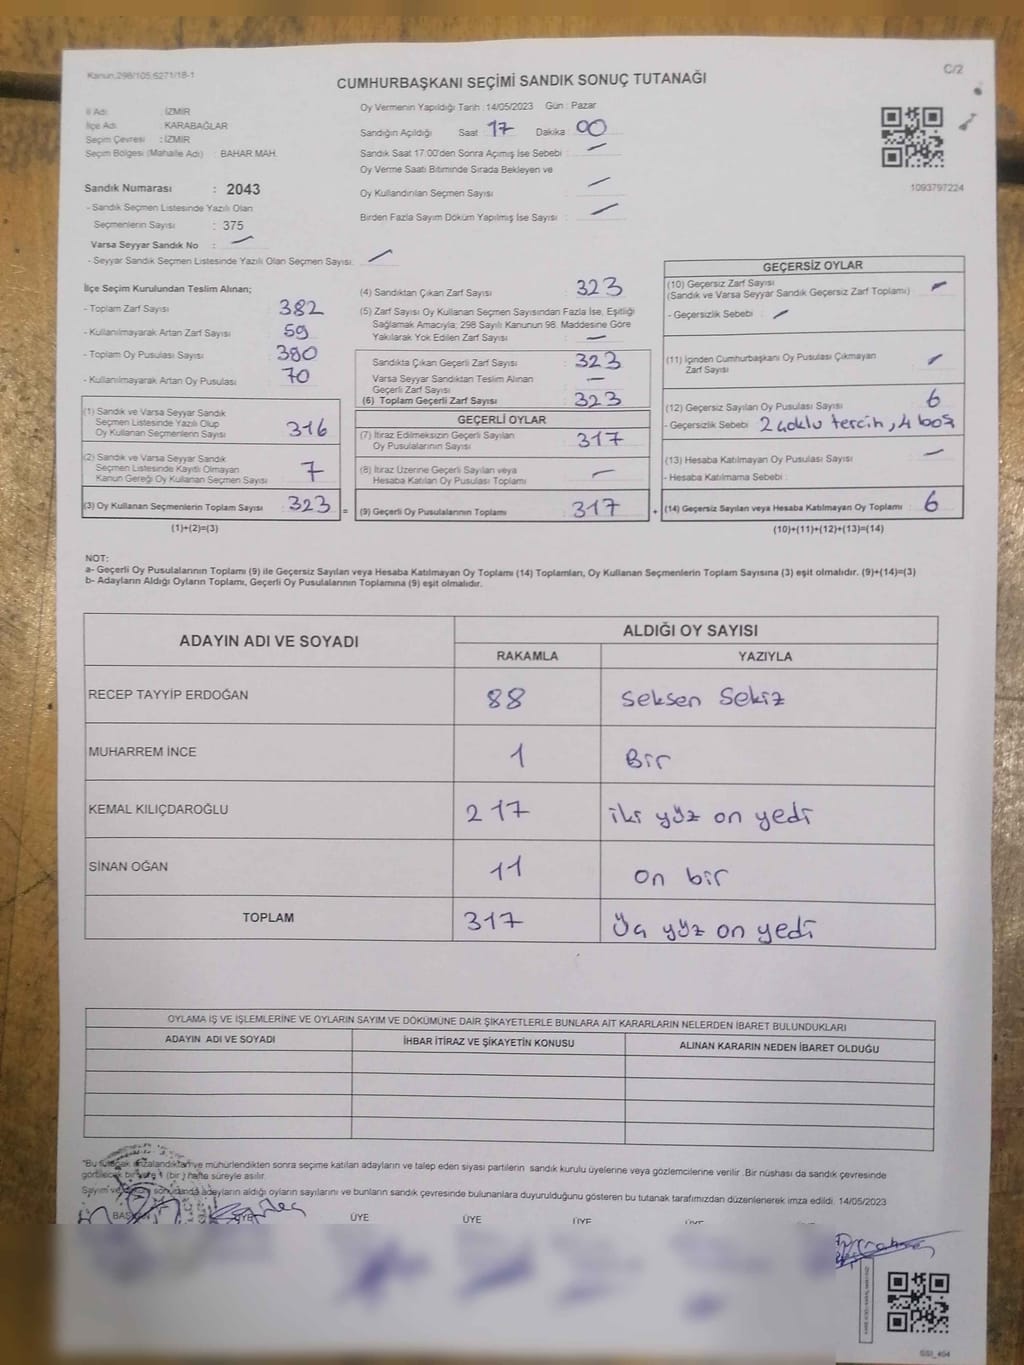 Kanun,298/105,6271/18-1
C/2
CUMHURBAŞKANI SEÇİMİ SANDIK SONUÇ TUTANAĞI
İl Adı : İZMİR
İlçe Adı : KARABAĞLAR
Seçim Çevresi : İZMİR
Seçim Bölgesi (Mahalle Adı) : BAHAR MAH.
Sandık Numarası : 2043
- Sandık Seçmen Listesinde Yazılı Olan
Seçmenlerin Sayısı : 375
Varsa Seyyar Sandık No : —
- Seyyar Sandık Seçmen Listesinde Yazılı Olan Seçmen Sayısı: —
Oy Vermenin Yapıldığı Tarih :14/05/2023 Gün : Pazar
Sandığın Açıldığı Saat 17 Dakika : 00
Sandık Saat 17:00'den Sonra Açımış İse Sebebi : —
Oy Verme Saati Bitiminde Sırada Bekleyen ve
Oy Kullandırılan Seçmen Sayısı : —
Birden Fazla Sayım Döküm Yapılmış İse Sayısı : —
1093797224
İlçe Seçim Kurulundan Teslim Alınan;
- Toplam Zarf Sayısı : 382
- Kullanılmayarak Artan Zarf Sayısı : 59
- Toplam Oy Pusulası Sayısı : 390
- Kullanılmayarak Artan Oy Pusulası : 70
(1) Sandık ve Varsa Seyyar Sandık
Seçmen Listesinde Yazılı Olup
Oy Kullanan Seçmenlerin Sayısı : 316
(2) Sandık ve Varsa Seyyar Sandık
Seçmen Listesinde Kayıtlı Olmayan
Kanun Gereği Oy Kullanan Seçmen Sayısı : 7
(3) Oy Kullanan Seçmenlerin Toplam Sayısı : 323 =
(1)+(2)=(3)
(4) Sandıktan Çıkan Zarf Sayısı : 323
(5) Zarf Sayısı Oy Kullanan Seçmen Sayısından Fazla İse, Eşitliği
Sağlamak Amacıyla; 298 Sayılı Kanunun 98. Maddesine Göre
Yakılarak Yok Edilen Zarf Sayısı : —
Sandıkta Çıkan Geçerli Zarf Sayısı : 323
Varsa Seyyar Sandıktan Teslim Alınan
Geçerli Zarf Sayısı : —
(6) Toplam Geçerli Zarf Sayısı : 323
GEÇERLİ OYLAR
(7) İtiraz Edilmeksizin Geçerli Sayılan
Oy Pusulalarının Sayısı : 317
(8) İtiraz Üzerine Geçerli Sayılan veya
Hesaba Katılan Oy Pusulası Toplamı : —
(9) Geçerli Oy Pusulalarının Toplamı : 317 +
GEÇERSİZ OYLAR
(10) Geçersiz Zarf Sayısı
(Sandık ve Varsa Seyyar Sandık Geçersiz Zarf Toplamı) : —
- Geçersizlik Sebebi : —
(11) İçinden Cumhurbaşkanı Oy Pusulası Çıkmayan
Zarf Sayısı : —
(12) Geçersiz Sayılan Oy Pusulası Sayısı : 6
- Geçersizlik Sebebi : 2 çoklu tercih, 4 boş
(13) Hesaba Katılmayan Oy Pusulası Sayısı : —
- Hesaba Katılmama Sebebi :
(14) Geçersiz Sayılan veya Hesaba Katılmayan Oy Toplamı : 6
(10)+(11)+(12)+(13)=(14)
NOT:
a- Geçerli Oy Pusulalarının Toplamı (9) ile Geçersiz Sayılan veya Hesaba Katılmayan Oy Toplamı (14) Toplamları, Oy Kullanan Seçmenlerin Toplam Sayısına (3) eşit olmalıdır. (9)+(14)=(3)
b- Adayların Aldığı Oyların Toplamı, Geçerli Oy Pusulalarının Toplamına (9) eşit olmalıdır.
ADAYIN ADI VE SOYADI ALDIĞI OY SAYISI
RAKAMLA YAZIYLA
RECEP TAYYİP ERDOĞAN 88 Seksen Sekiz
MUHARREM İNCE 1 Bir
KEMAL KILIÇDAROĞLU 217 iki yüz on yedi
SİNAN OĞAN 11 on bir
TOPLAM 317 Üç yüz on yedi
OYLAMA İŞ VE İŞLEMLERİNE VE OYLARIN SAYIM VE DÖKÜMÜNE DAİR ŞİKAYETLERLE BUNLARA AİT KARARLARIN NELERDEN İBARET BULUNDUKLARI
ADAYIN ADI VE SOYADI İHBAR İTİRAZ VE ŞİKAYETİN KONUSU ALINAN KARARIN NEDEN İBARET OLDUĞU
"Bu tutanak imzalandıktan ve mühürlendikten sonra seçime katılan adayların ve talep eden siyasi partilerin sandık kurulu üyelerine veya gözlemcilerine verilir. Bir nüshası da sandık çevresinde
görülecek bir yere 1 (bir) hafta süreyle asılır.
Sayım ve sonunda adayların aldığı oyların sayılarını ve bunların sandık çevresinde bulunanlara duyurulduğunu gösteren bu tutanak tarafımızdan düzenlenerek imza edildi. 14/05/2023
BAŞKAN ÜYE ÜYE ÜYE ÜYE
SSI_404